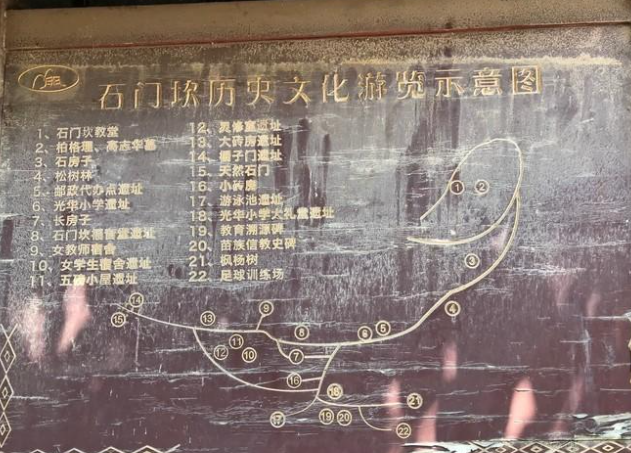 石门坎历史文化游览示意图
1、石门坎教堂
2、柏格理、高志华墓
3、石房子
4、松树林
5、邮政代办点遗址
6、光华小学遗址
7、长房子
8、石门坎福音堂遗址
9、女教师宿舍
10、女学生宿舍遗址
11、五磅小屋遗址
12、灵修室遗址
13、大砖房遗址
14、子门遗址
15、天然石门
16、小砖房
17、游泳池遗址
18、光华小学大礼堂遗址
19、教育溯源碑
20、苗族信教史碑
21、枫杨树
22、足球训练场
1 2
3
4
14
15
13
9
8
6 5
11
12 10
7
16
18
21
17 19 20
22